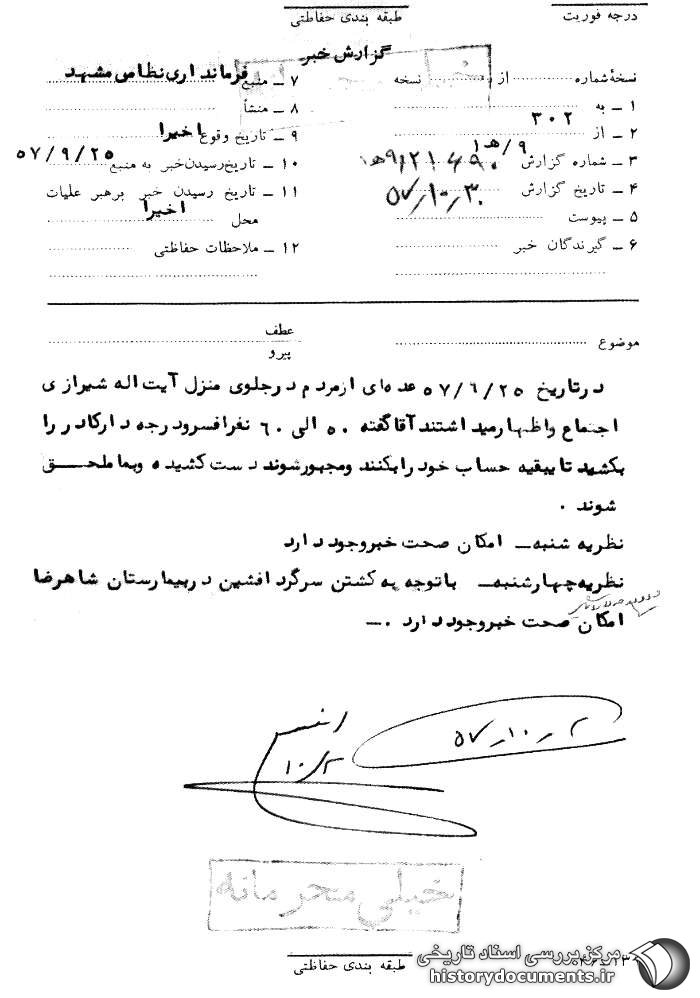 درجه فوریت
طبقه بندی حفاظتی
گزارش خبر
نسخهٔ شماره از نسخه
۱ ـ به ۳۰۲
۲ ـ از ۹/هـ۱
۳ ـ شماره گزارش
۴ ـ تاریخ گزارش ۵۷٫۱۰٫۳
۵ ـ پیوست
۶ ـ گیرندگان خبر
۷ ـ منبع فرمانداری نظامی مشهد
۸ ـ منشأ
۹ ـ تاریخ وقوع اخیرا
۱۰ ـ تاریخ رسیدن خبر به منبع ۵۷/۹/۲۵
۱۱ ـ تاریخ رسیدن خبر برهبر عملیات
محل اخیرا
۱۲ ـ ملاحظات حفاظتی
موضوع
عطف
پیرو
در تاریخ ۵۷/۹/۲۵ عده‌ای از مردم در جلوی منزل آیت اله شیرازی
اجتماع و اظهار میداشتند آقا گفته ۵۰ الی ۶۰ نفر افسر و درجه دار کادر را
بکشید تا بقیه حساب خود را بکنند و مجبور شوند دست کشیده و بما ملحق
شوند .
نظریه شنبه ـ امکان صحت خبر وجود دارد
نظریه چهارشنبه ـ با توجه به کشتن سرگرد افشین در بیمارستان شاهرضا
امکان صحت خبر وجود دارد . ـ
۵۷٫۱۰٫۲
۱۰٫۲
خیلی محرمانه
طبقه بندی حفاظتی
مرکز بررسی اسناد تاریخی
historydocuments.ir